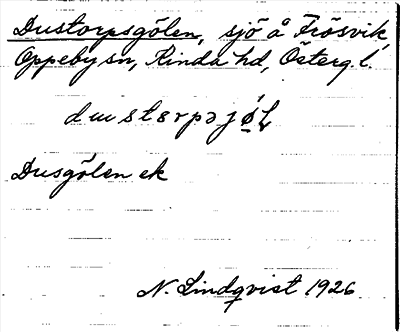 Dustorpsgölen, sjö å Frösvik,
Oppeby sn, Kinda hd, Österg. l.
dustərpəjǿlⱨ
Dusgölen ek
N. Lindqvist 1926